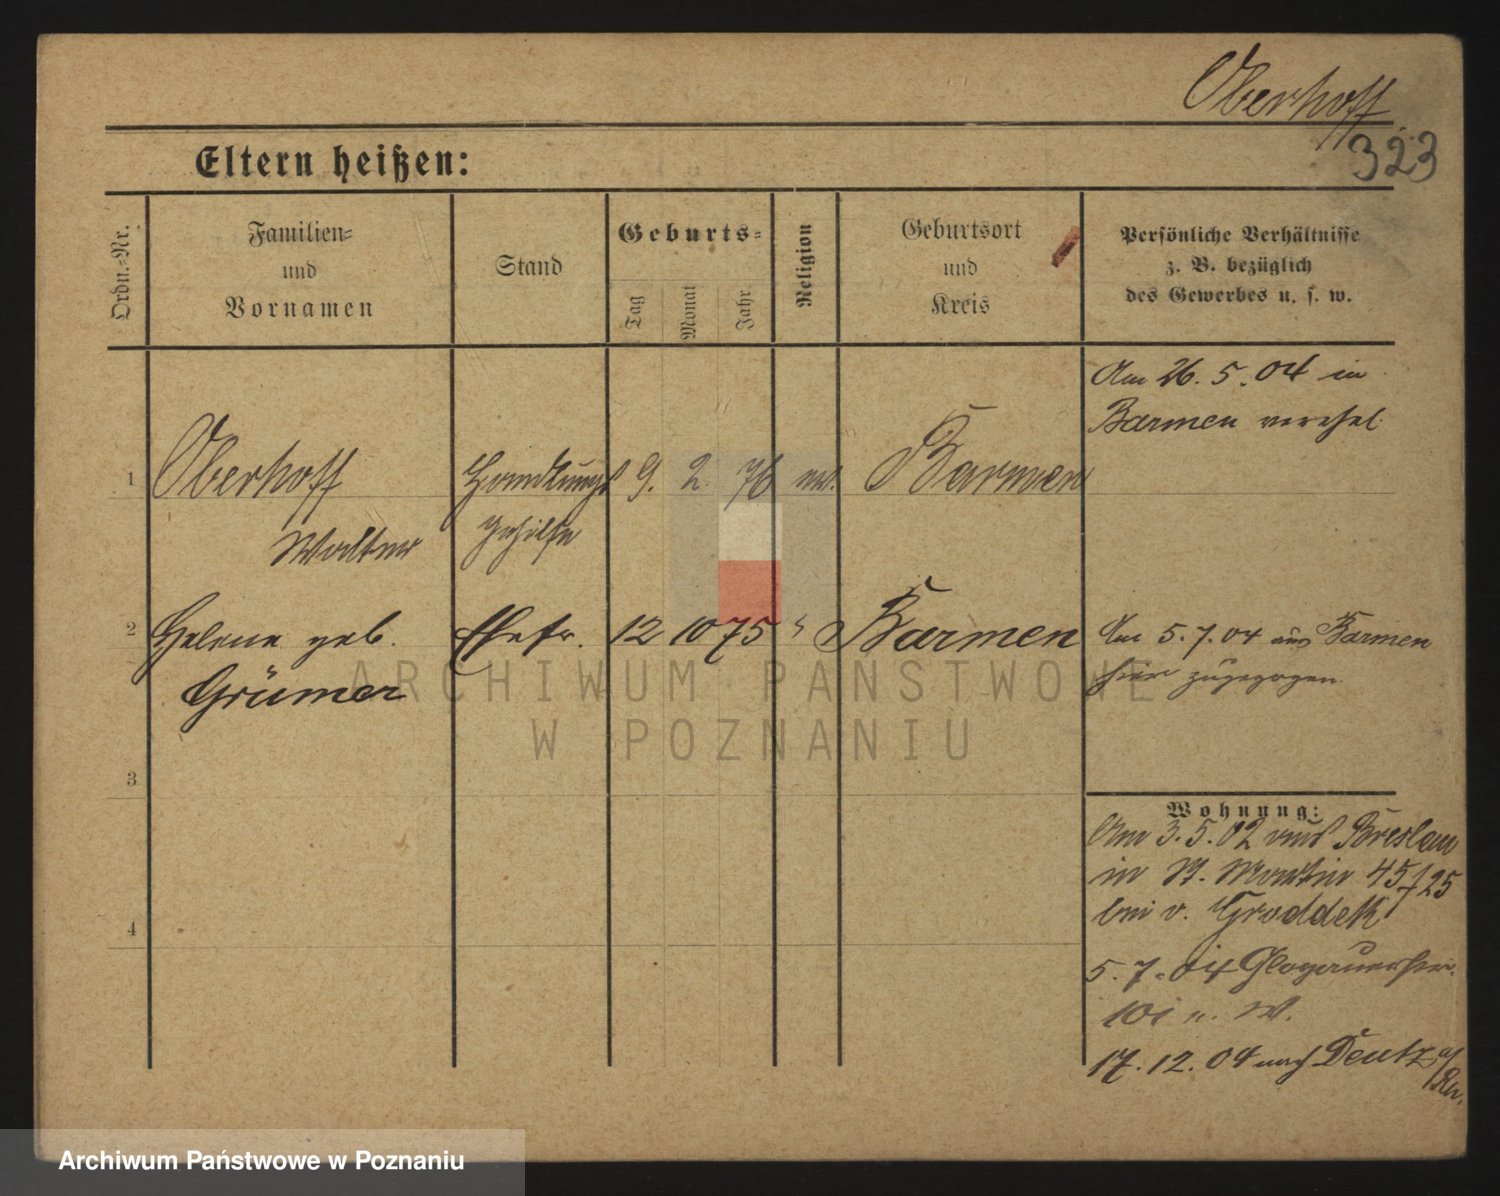 Oberhoff
323
Eltern heißen:
Ordn.-Nr.
Familien-
und
Vornamen
Stand
Geburts-
Tag
Monat
Jahr
Religion
Geburtsort
und
Kreis
Persönliche Verhältnisse
z. B. bezüglich
des Gewerbes u. s. w.
Am 26. 5. 04 in
Barmen verehel.
1 Oberhoff Handlungs 9. 2. 76 ev. Barmen
Walter gehilfe
2 Helene geb. Ehefr. 12 10 75 " Barmen Am 5. 7. 04 aus Barmen
Grümer hier zugezogen.
ARCHIWUM PAŃSTWOWE
W POZNANIU
3
Wohnung:
Am 3. 5. 02 aus Breslau
in St. Martin 45/25
bei v. Groddek
4
5. 7. 04 Glogauerstr.
10 W.
17. 12. 04 nach Deutz a/
Rh.
Archiwum Państwowe w Poznaniu